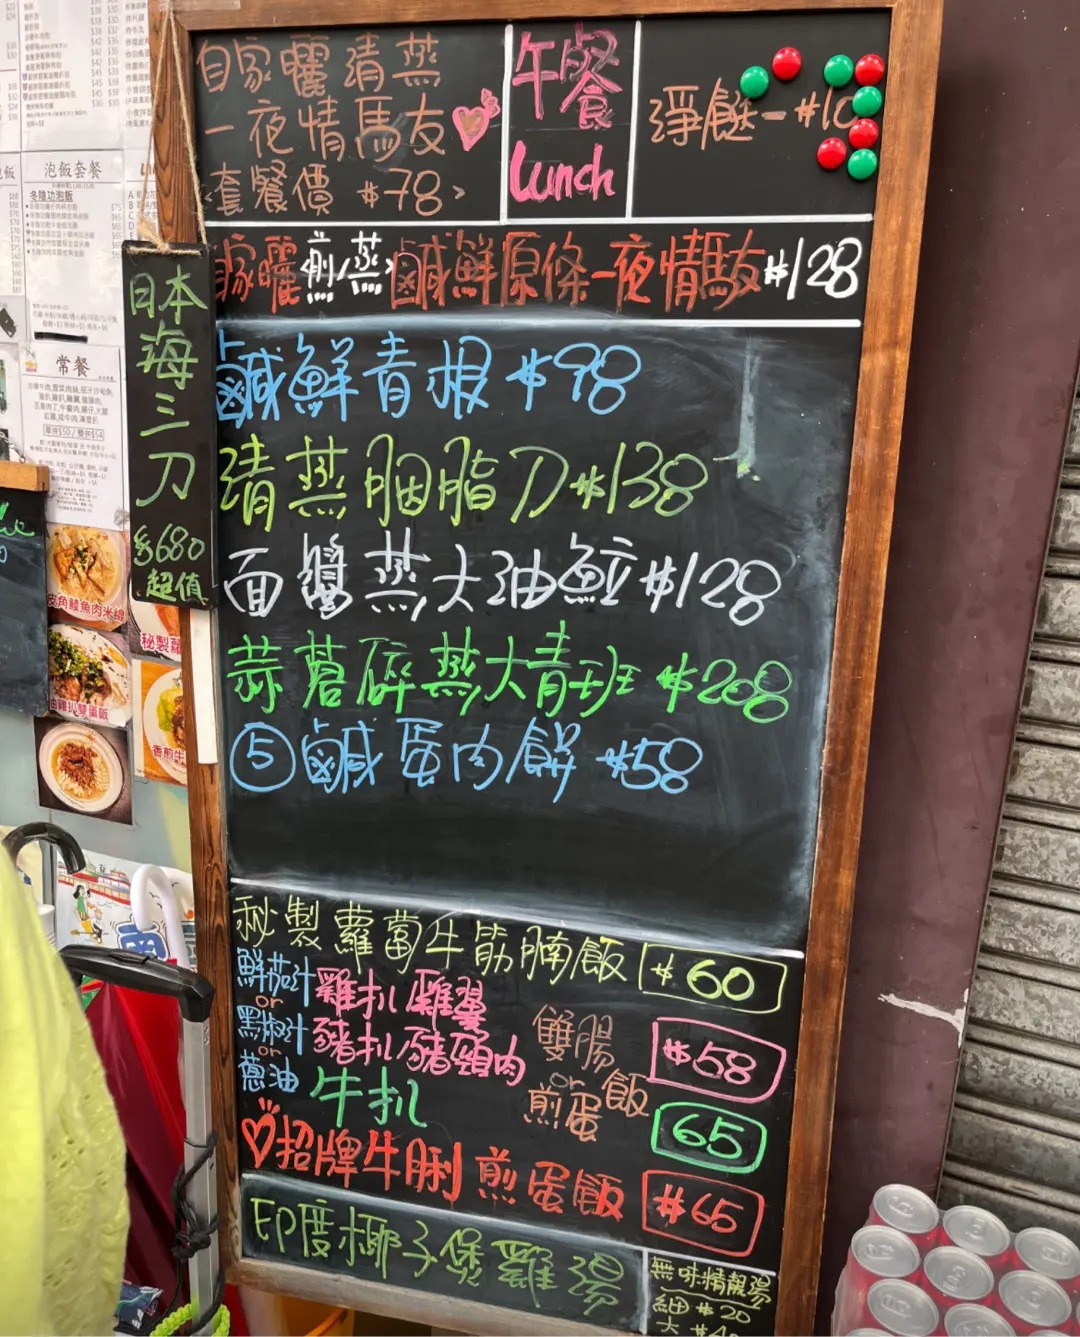 自家曬清蒸
一夜情馬友
套餐價 $78
午餐
Lunch
淨餸-$10
自家曬煎/蒸鹹鮮原條一夜情馬友$128
日本海三刀
$680
超值
鹹鮮青根 $98
清蒸胭脂刀$138
面醬蒸大油䱽$128
蒜茸碎蒸大青班 $208
⑤鹹蛋肉餅 $58
秘製蘿蔔牛筋腩飯 $60
鮮茄汁
or
黑椒汁
or
蔥油
雞扒/雞翼
豬扒/豬頸肉
牛扒
雙腸
or
煎蛋
飯
$58
65
招牌牛脷 煎蛋飯 $65
印度椰子煲雞湯
無味精靚湯
細 $20
大
泡飯套餐
冬陰功泡飯
常餐
皮角鯪魚肉米線
秘製蘿
油雞扒雙蛋飯
香煎牛